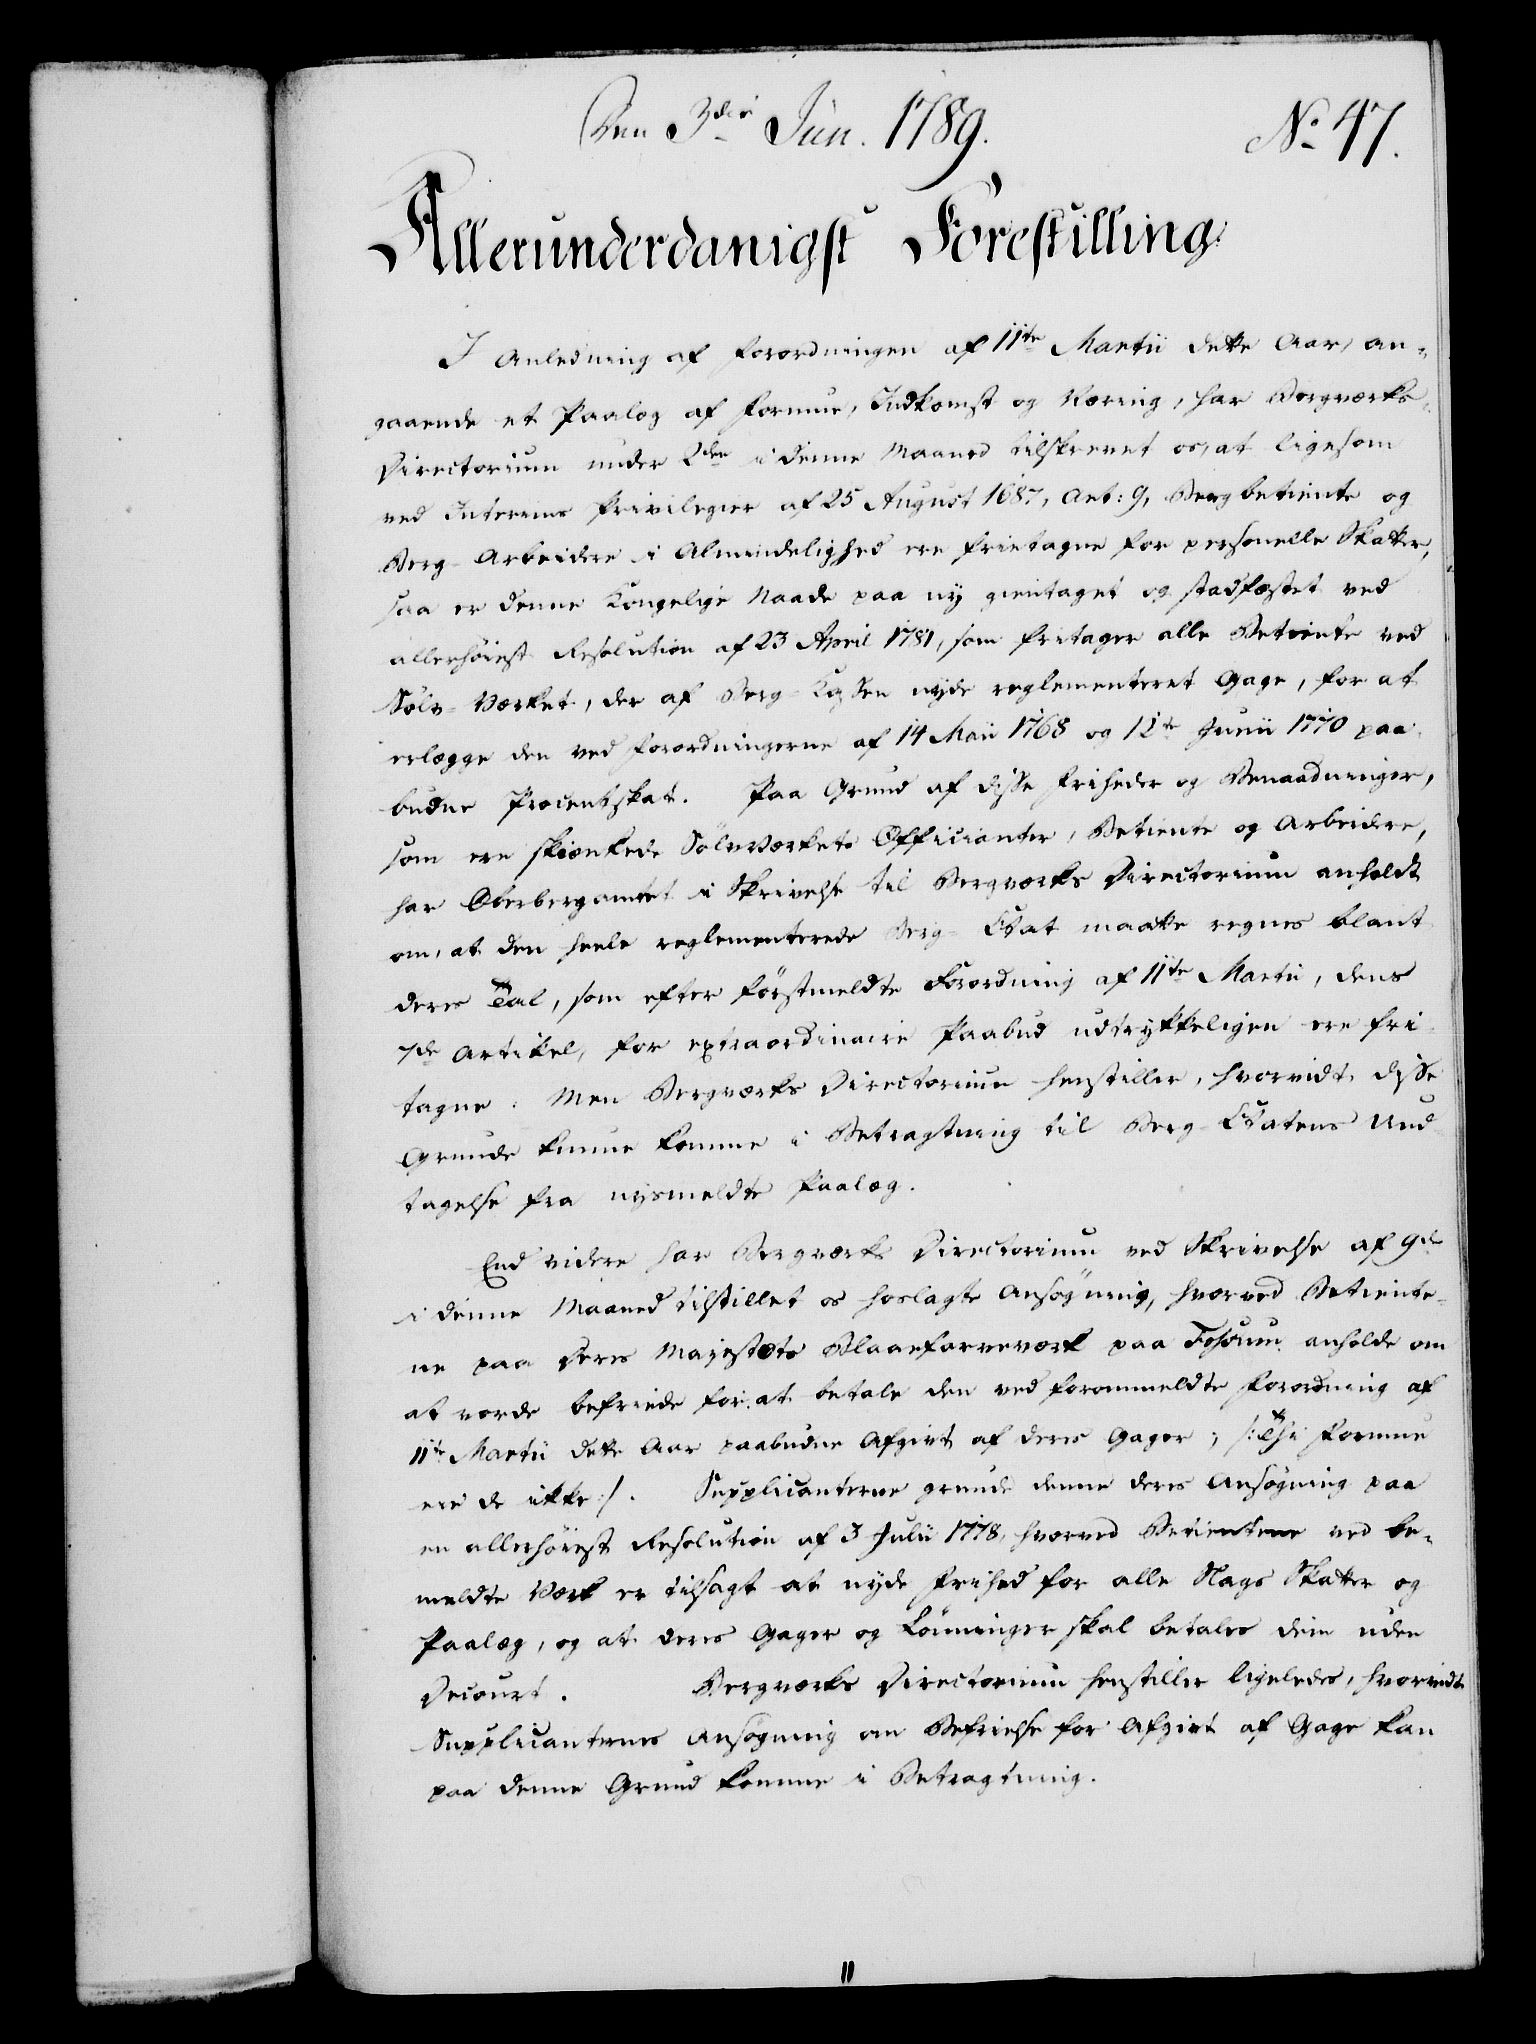 Den 3die Jun. 1789.
No 47.
Allerunderdanigst Forestilling.
I Anledning af Forordningen af 11te Martii dette Aar, an-
gaaende et Paalæg af Formue, Indkomst og Næring, har Bergværks-
Directorium under 2den i denne Maaned tilskrevet os, at ligesom
ved Interims Privilegier af 25 August 1687, Art: 9, Bergbetiente og
Berg-Arbeidere i Almindelighed ere fritagne for personelle Skatter,
saa er denne Kongelige Naade paa ny gientaget og stadfæstet ved
allerhøiest Resolution af 23 April 1781, som fritager alle Betiente ved
Sølv-Værket, der af Berg-Cassen nyde reglementeret Gage, for at
erlægge den ved Forordningerne af 14 Maii 1768 og 12te Junii 1770 paa-
budne Procentskat. Paa Grund af disse Friheder og Benaadninger,
som ere skienkede Sølvværkets Officianter, Betiente og Arbeidere,
har Oberbergamtet i Skrivelse til Bergværks Directorium anholdt
om, at den heele reglementerede Berg-Etat maatte regnes blant
deres Tal, som efter førstmeldte Forordning af 11te Martii, dens
7de Artikel, for extraordinaire Paabud udtrykkeligen ere fri-
tagne. Men Bergværks Directorium henstiller, hvorvidt disse
Grunde kunne komme i Betragtning til Berg-Etatens Und-
tagelse fra nysmeldte Paalæg.
End videre har Bergværks Directorium ved Skrivelse af 9de
i denne Maaned tilstillet os hoslagte Ansøgning, hvorved Betiente-
ne paa Deres Majestæts Blaaefarveværk paa Fossum anholde om
at vorde befriede for at betale den ved forommeldte Forordning af
11te Martii dette Aar paabudne Afgivt af deres Gager; /: Thi Formue
eie de ikke :/. Supplicanterne grunde denne deres Ansøgning paa
en allerhøiest Resolution af 3 Julii 1778, hvorved Betientene ved be-
meldte Værk er tilsagt at nyde Frihed for alle Slags Skatter og
Paalæg, og at deres Gager og Lønninger skal betales dem uden
Decourt. Bergværks Directorium henstiller ligeledes, hvorvidt
Supplicanternes Ansøgning om Befrielse for Afgivt af Gage kan
paa denne Grund komme i Betragtning.